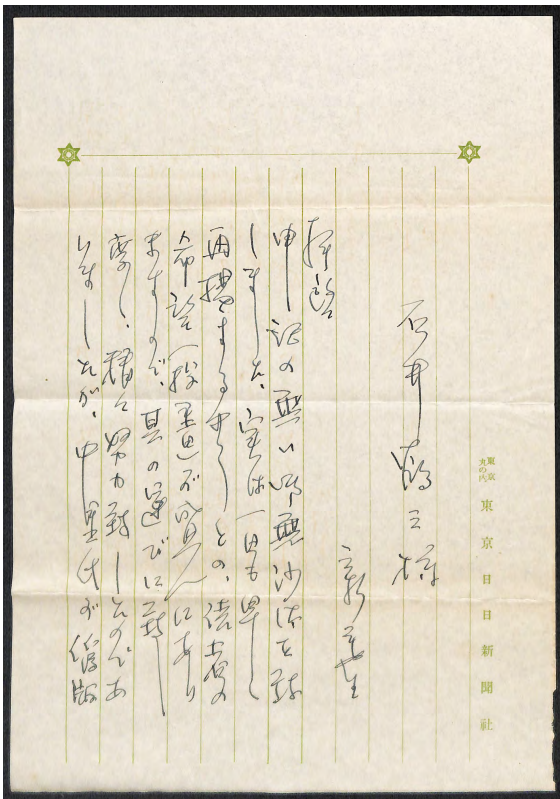 東京
丸の内
東京日日新聞社
石井鶴三様
新妻生
拝啓
申し訳の無い御無沙汰を致
しました、実は一日も早く
再掲するやうとの、読者の
希望投書が盛んにあり
ますので、其の運びに致し
度く、種々努力致したのであ
りましたが、中里氏が